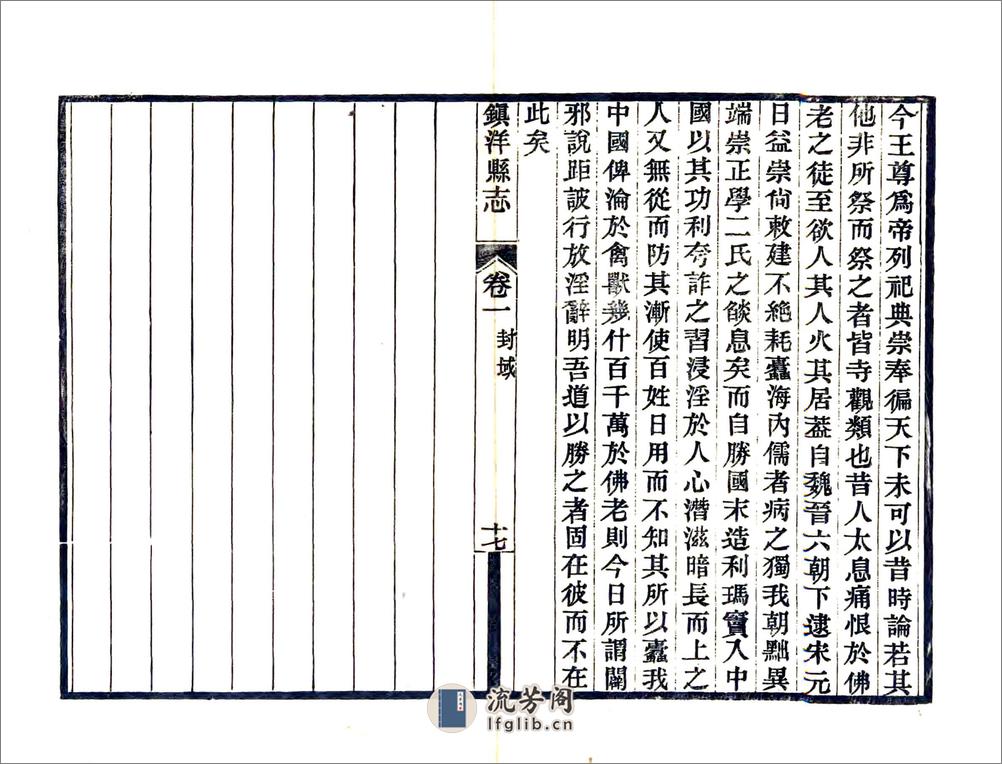 今王尊爲帝列祀典崇奉徧天下未可以昔時論若其
他非所祭而祭之者皆寺觀類也昔人太息痛恨於佛
老之徒至欲人其人火其居葢自魏晉六朝下逮宋元
日益崇尙敕建不絕耗蠹海內儒者病之獨我朝黜異
端崇正學二氏之燄息矣而自勝國末造利瑪竇入中
國以其功利夸詐之習浸淫於人心潛滋暗長而上之
人又無從而防其漸使百姓日用而不知其所以蠹我
中國俾淪於禽獸幾什百千萬於佛老則今日所謂闢
邪說距詖行放淫辭明吾道以勝之者固在彼而不在
此矣
鎮洋縣志
卷一 封域
十七
流芳阁
lfglib.cn